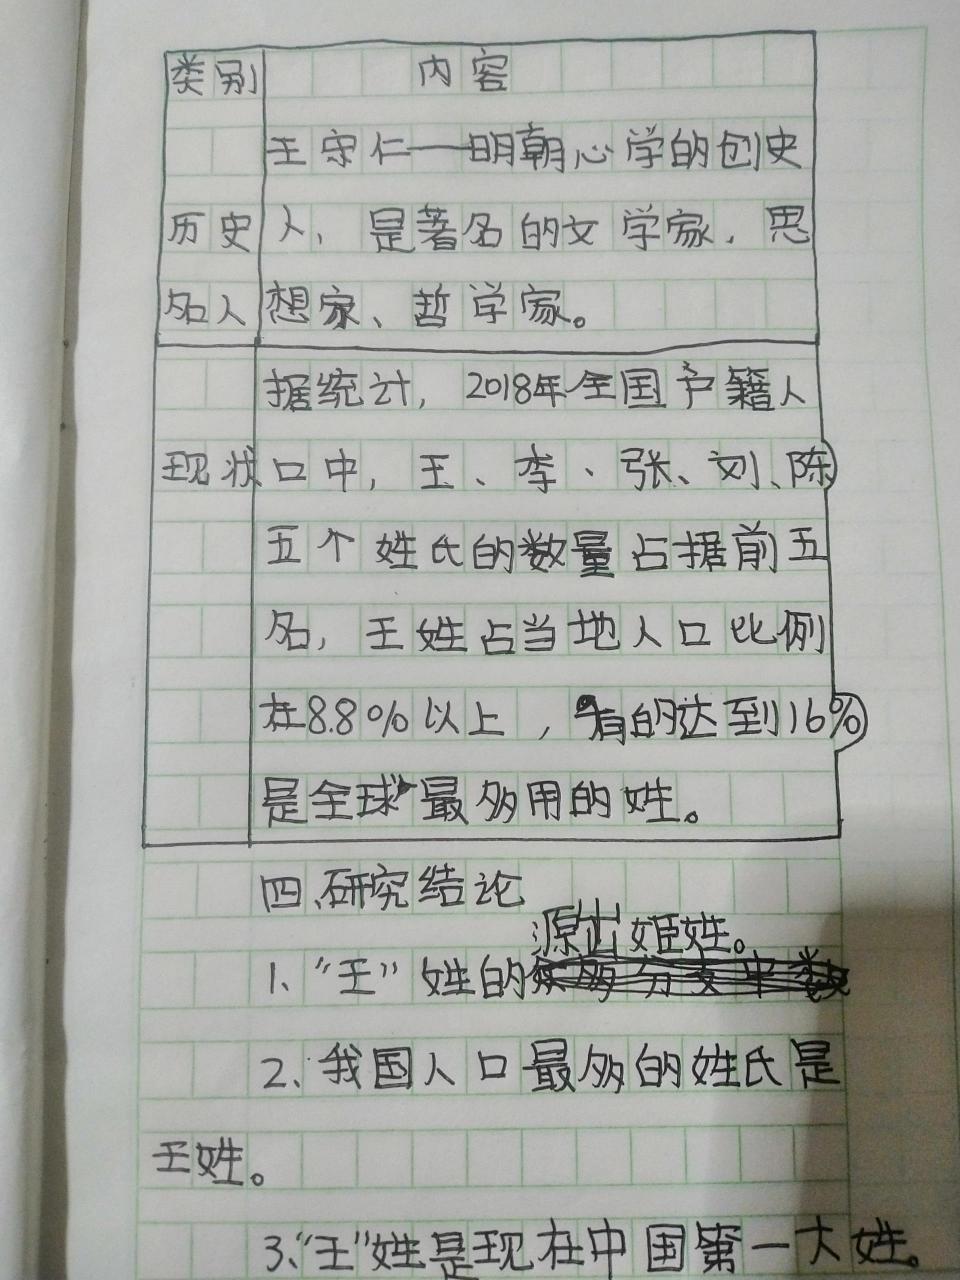 类别 内容
王守仁——明朝心学的创史
历史 人，是著名的文学家，思
名人 想家、哲学家。
据统计，2018年全国户籍人
现状 口中，王、李、张、刘、陈
五个姓氏的数量占据前五
名，王姓占当地人口比例
在8.8%以上，有的达到16%
是全球最多用的姓。
四、研究结论
源出姬姓。
1、“王”姓的
2、我国人口最多的姓氏是
王姓。
3、“王”姓是现在中国第一大姓。